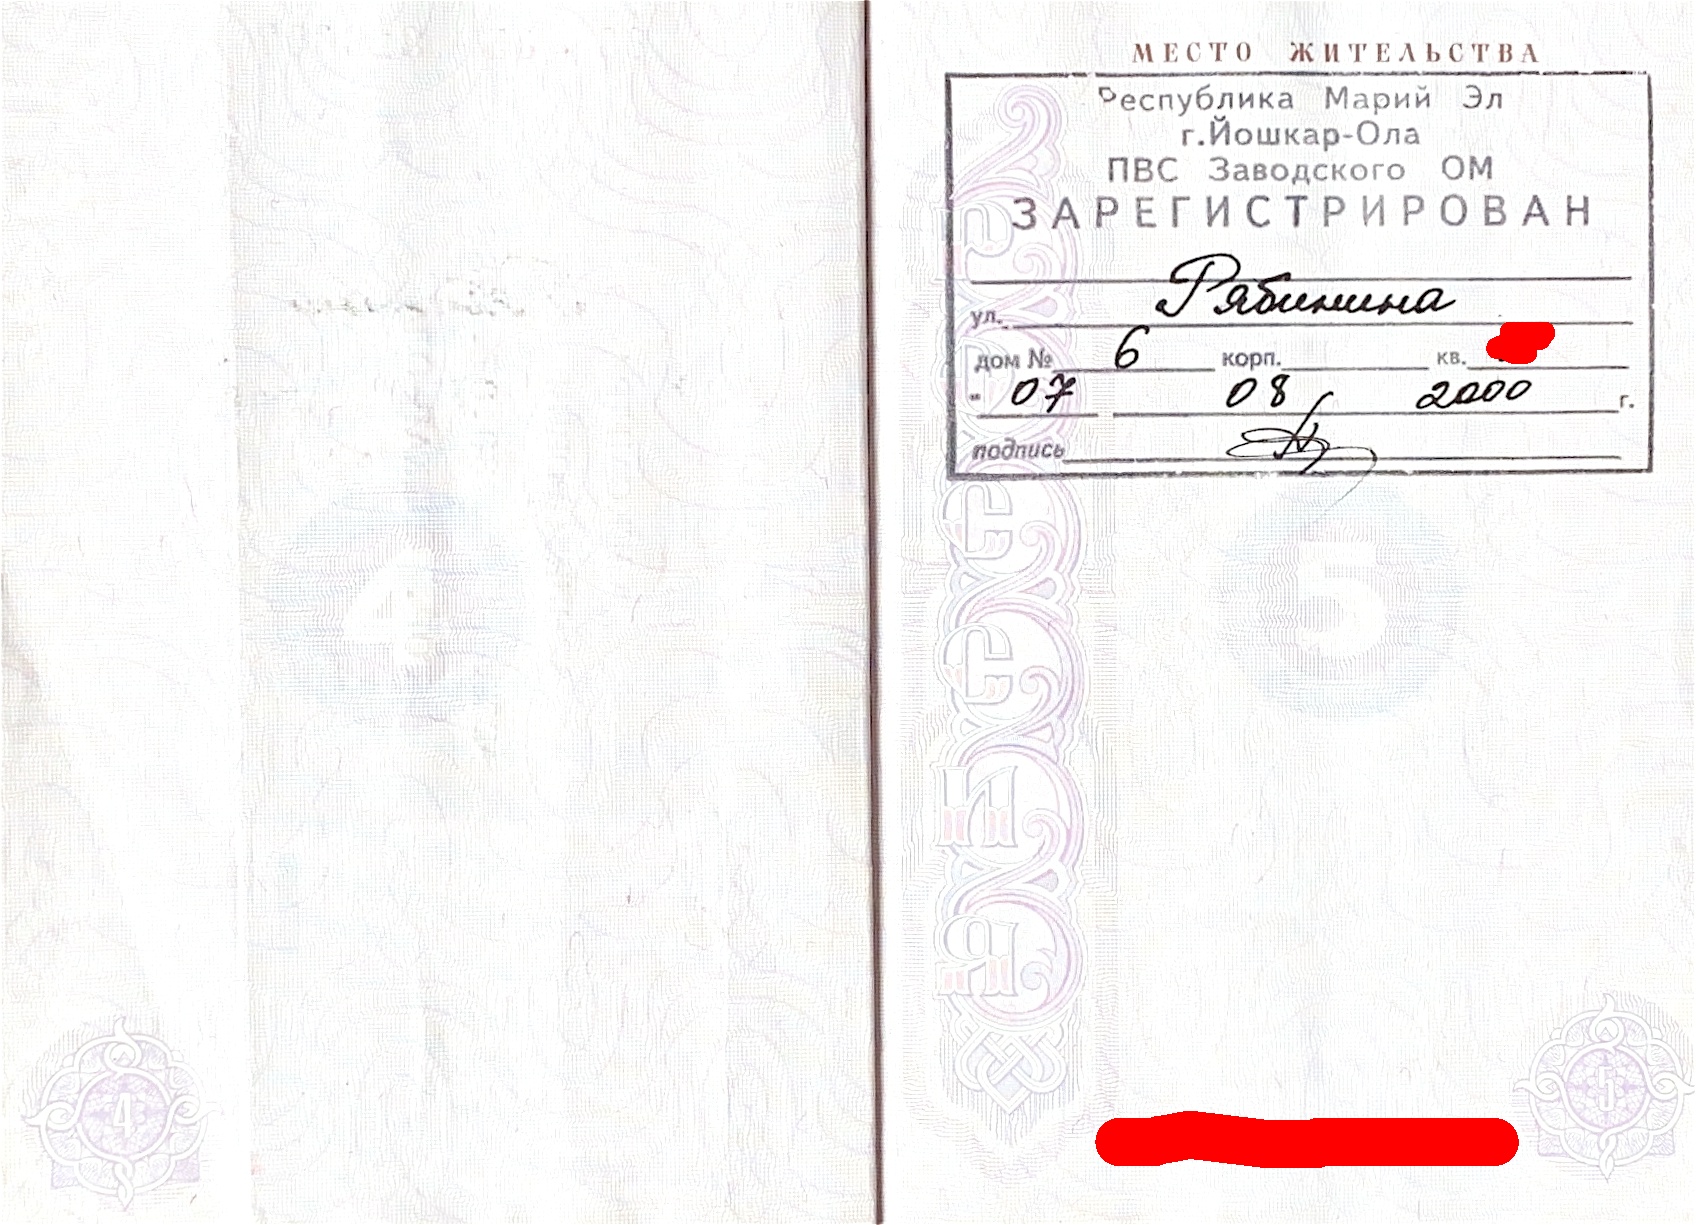 МЕСТО ЖИТЕЛЬСТВА
Республика Марий Эл
г.Йошкар-Ола
ПВС Заводского ОМ
ЗАРЕГИСТРИРОВАН
ул. Рябинина
дом № 6 корп. кв.
" 07 08 2000 г.
подпись
РОССИЯ
4
5
4
5